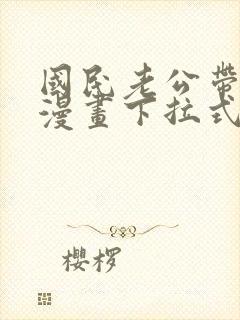 國民老公帶
漫畫下拉式
櫻桜